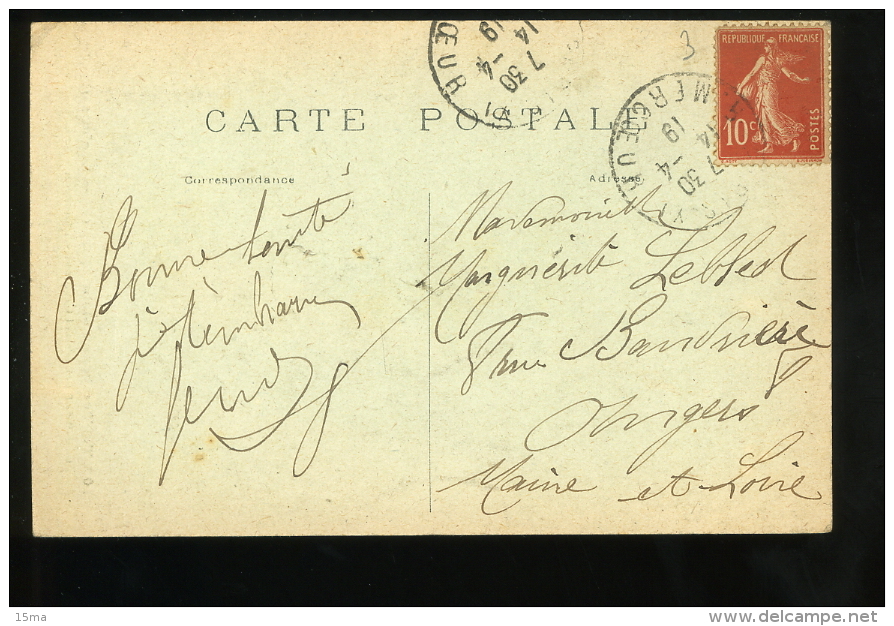 CARTE POSTALE
Correspondance
Adresse
3
REPUBLIQUE FRANÇAISE
10c
POSTES
7 30
19 -4
14
ŒUR
MERCŒUR
7 30
19 -4
14
Bonne santé
je t'embrasse
Mademoiselle
Marguerite Lebled
7 rue Baudrière
Angers
Maine et Loire
15ma
www.delcampe.net